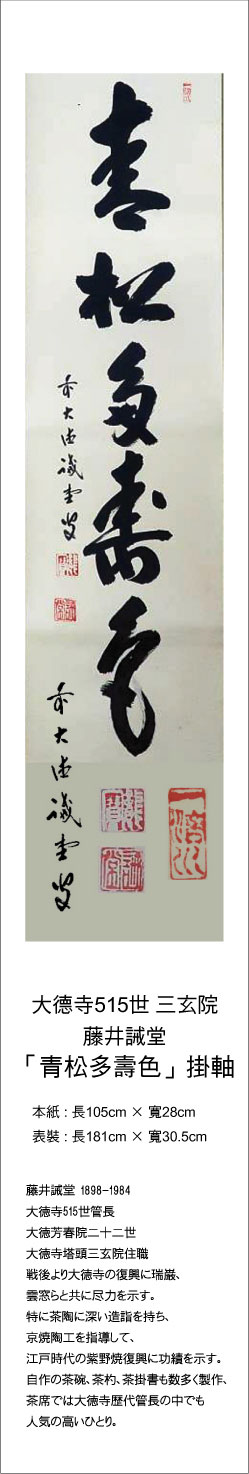 青松多壽色
前大德誡堂叟
前大德誡堂叟
大徳寺515世 三玄院
藤井誡堂
「青松多壽色」掛軸
本紙：長105cm × 寬28cm
表裝：長181cm × 寬30.5cm
藤井誡堂 1898-1984
大徳寺515世管長
大徳芳春院二十二世
大徳寺塔頭三玄院住職
戦後より大徳寺の復興に瑞巌、
雲窓らと共に尽力を示す。
特に茶陶に深い造詣を持ち、
京焼陶工を指導して、
江戸時代の紫野焼復興に功績を示す。
自作の茶碗、茶杓、茶掛書も数多く製作、
茶席では大徳寺歴代管長の中でも
人気の高いひとり。